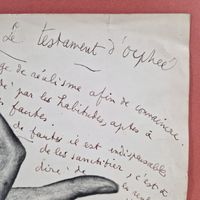 Le testament d'orphée
ge de réalisme afin de convaincre.
par les habitudes, après à
fautes.
de fautes il est indispensables
de les sanctifier c'est à
dire : de